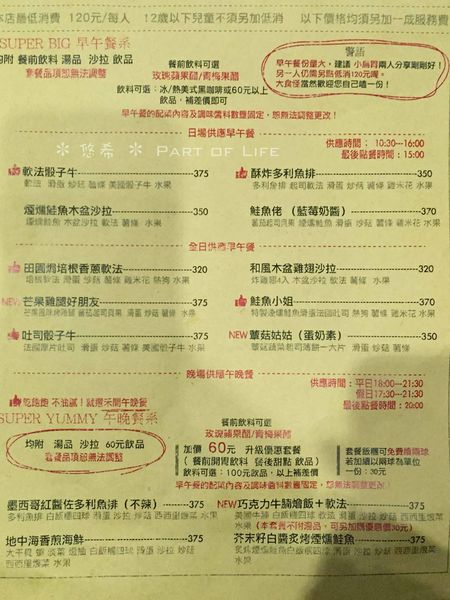 本店最低消費 120元/每人 12歲以下兒童不須另加低消 以下價格均須另加一成服務費
SUPER BIG 早午餐系
均附 餐前飲料 湯品 沙拉 飲品
套餐品項恕無法調整
餐前飲料可選
玫瑰蘋果醋/青梅果醋
飲料可選：冰/熱美式黑咖啡或60元以上
飲品，補差價即可
警語
早午餐份量大，建議 小鳥胃兩人分享剛剛好！
另一人仍需另點低消120元喔。
大食怪當然歡迎您自己嗑一份！
早午餐的配菜內容及調味醬料數量固定，恕無法調整更改！
✻ 悠希 ✻ PART OF LIFE
日場供應早午餐
供應時間： 10:30---16:00
最後點餐時間：15:00
軟法骰子牛 375
軟法 滑蛋 炒菇 薯條 美國骰子牛 水果
酥炸多利魚排 350
多利魚排 起司軟法 滑蛋 炒菇 薯條 雞米花 水果
煙燻鮭魚木盆沙拉 350
煙燻鮭魚 木盆沙拉 軟法 薯條 水果
鮭魚佬 （藍莓奶醬） 370
蕃茄起司貝果 煙燻鮭魚 滑蛋 炒菇 薯條 雞米花 水果
全日供應早午餐
田園焗培根香蔥軟法 320
培根軟法 滑蛋 炒菇 薯條 熱狗 雞米花 水果
和風木盆雞翅沙拉 320
炸雞翅4入 木盆沙拉 軟法 薯條 水果
NEW 芒果雞腿好朋友 375
芒果風味烤雞腿 蕃茄起司貝果 滑蛋 炒菇 薯條 水果
鮭魚小姐 370
特製煙燻鮭魚滑蛋法國吐司 熱狗 薯條 雞米花 水果
吐司骰子牛 375
法國厚片吐司 滑蛋 炒菇 薯條 美國骰子牛 水果
NEW 蕈菇姑姑（蛋奶素） 350
蕈菇蔬菜起司薄餅一大片 滑蛋 炒菇 薯條
晚場供應午晚餐
供應時間：平日18:00---21:30
假日17:30---21:30
最後點餐時間：20:00
乾飽飽 不油膩！就選禾開午晚餐
SUPER YUMMY 午晚餐系
均附 湯品 沙拉 60元飲品
套餐品項恕無法調整
餐前飲料可選
玫瑰蘋果醋/青梅果醋
加價 60元 升級優惠套餐
（ 餐前開胃飲料 餐後甜點 飲品）
飲料可選：100元飲品，以上補差價
套餐飯應可免費續兩球
若加續以兩球為單位
一份：30元
早午餐的配菜內容及調味醬料數量固定，恕無法調整更改！
墨西哥紅醬佐多利魚排（不辣） 375
多利魚排 白飯糰四球 滑蛋 沙拉 炒菇 西西里燉菜 水果
NEW 巧克力牛腩燴飯＋軟法 375
美國牛腩 白飯糰四球 軟法 滑蛋 沙拉 炒菇 西西里燉菜 水果
（本套餐不附湯品，可另加購優惠價30元）
地中海香煎海鮮 375
大干貝 蟹 淡菜 透抽 白飯糰四球 滑蛋 沙拉 炒菇
西西里燉菜 水果
芥末籽白醬炙烤煙燻鮭魚 375
炙烤煙燻鮭魚 白飯糰四球 滑蛋 沙拉 炒菇 西西里燉菜
水果